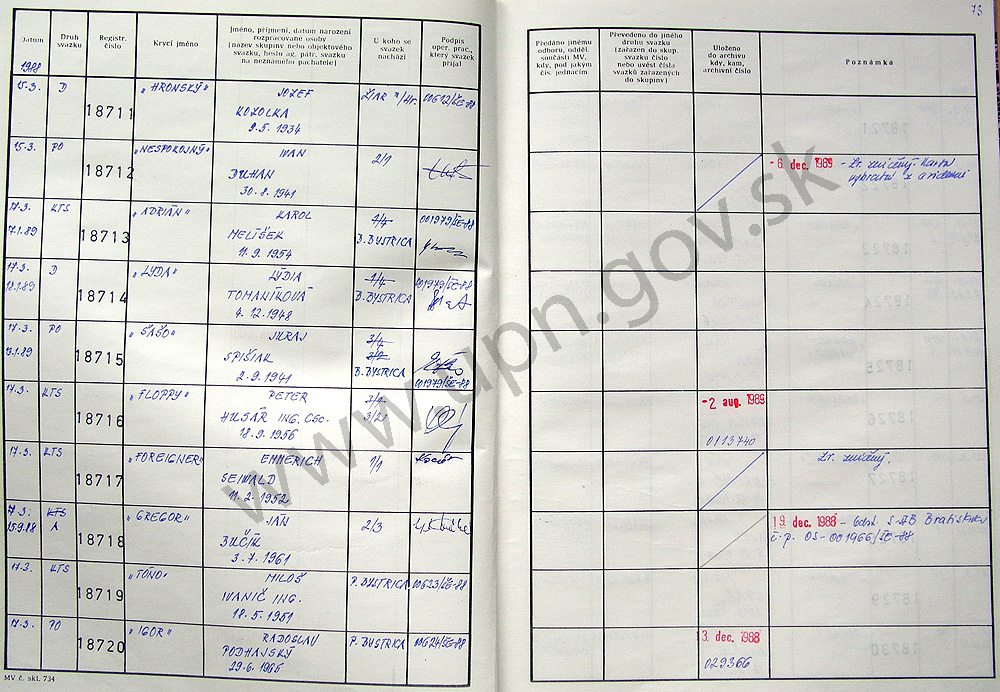 73
Datum
Druh svazku
Registr. číslo
Krycí jméno
Jméno, příjmení, datum narození
rozpracované osoby
(název skupiny nebo objektového
svazku, heslo ag. pátr. svazku
na neznámého pachatele)
U koho se
svazek
nachází
Podpis
oper. prac.,
který svazek
přijal
Předáno jinému
odboru, odděl.
součásti MV,
kdy, pod jakým
čís. jednacím
Převedeno do jiného
druhu svazku
(zařazen do skup.
svazku číslo
nebo uvést čísla
svazků zařazených
do skupiny)
Uloženo
do archivu
kdy, kam,
archivní číslo
Poznámka
1988
15.3. D 18711 "HRONSKÝ" JOZEF ŽIAR n/Hr. 00612/ŠE-88
KOZOLKA
9.5. 1934
15.3. PO 18712 "NESPOKOJNÝ" IVAN 2/1
DUHAN
30.8.1941
-6. dec. 1989 - Zv. zničený. Karta
vybratá z evidencie
17.3. KTS 18713 "ADRIÁN" KAROL 1/4 001979/ŠE-88
17.1.89 MELÍŠEK B. BYSTRICA
11.9.1954
17.3. D 18714 "LYDA" LÝDIA 1/4 001979/ŠE-88
18.1.89 TOMANÍKOVÁ B. BYSTRICA
4.12.1948
17.3. PO 18715 "SAŠO" JURAJ 3/4
SPIŠIAK
2.9.1941 B. BYSTRICA 001979/ŠE-88
17.3. KTS 18716 "FLOPPY" PETER
HUSÁR ING. CSC. 3/21
18.9.1956
-2. aug. 1989
0113740
17.3. KTS 18717 "FOREIGNER" EMMERICH 1/1
SEIWALD
11.2.1952
Zv. zničený.
17.3. KTS 18718 "GREGOR" JÁN 2/3
15.9.88 A BUČÍK
3.7.1961
19. dec. 1988 - Odst. S-ŠB Bratislava
č.p. OS-001966/ŠE-88
17.3. KTS 18719 "TÓNO" MILOŠ P. BYSTRICA 00623/ŠE-88
IVANIČ ING.
18.5.1951
17.3. PO 18720 "IGOR" RADOSLAV P. BYSTRICA 00624/ŠE-88
PODHAJSKÝ
29.6.1965
3. dec. 1988
029366
MV č. skl. 734
www.upn.gov.sk